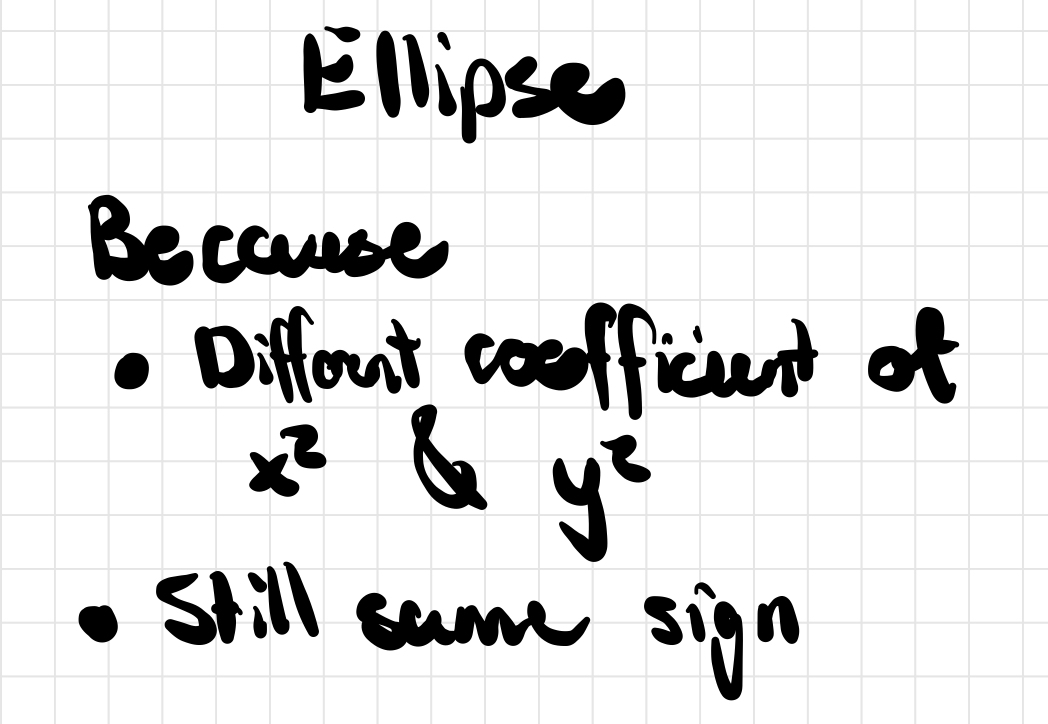 Ellipse
Because
• Different coefficient of
x² & y²
• Still same sign